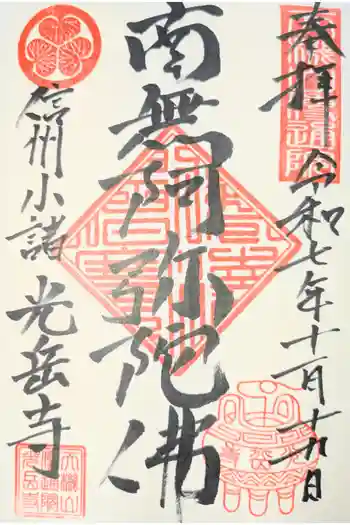 奉拝
令和七年十一月十九日
南無阿弥陀佛
信州小諸
光岳寺